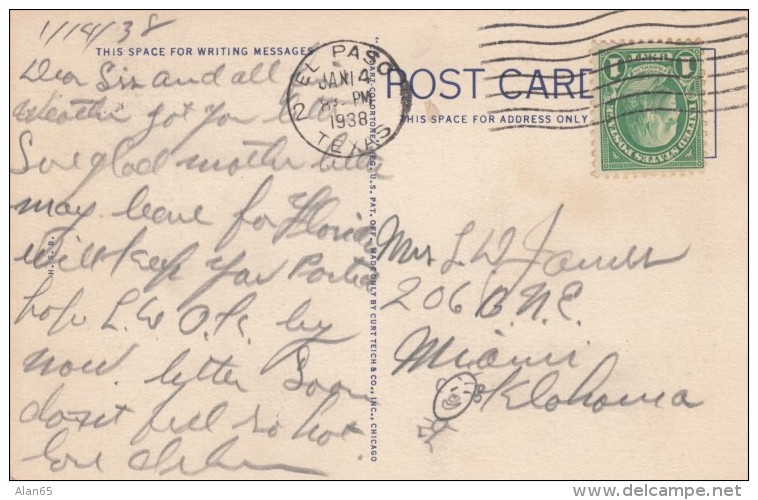 1/14/38
THIS SPACE FOR WRITING MESSAGES
Dear Sis and all
Weather got you
So glad mother better
may leave for Florida
will keep you Posted
hope L.W. O.K. by
now. letter Soon
dosnt feel so hot.
Love
H-S-8
"C.T. ART-COLORTONE" REG. U.S. PAT. OFF. MADE ONLY BY CURT TEICH & CO., INC., CHICAGO
EL PASO
2
JAN 14
PM
1938
TEXAS
POST CARD
THIS SPACE FOR ADDRESS ONLY
1 1
UNITED STATES POSTAGE
Mrs L W James
206 B. N.E.
Miami
Oklahoma
Alan65
delcampe.net